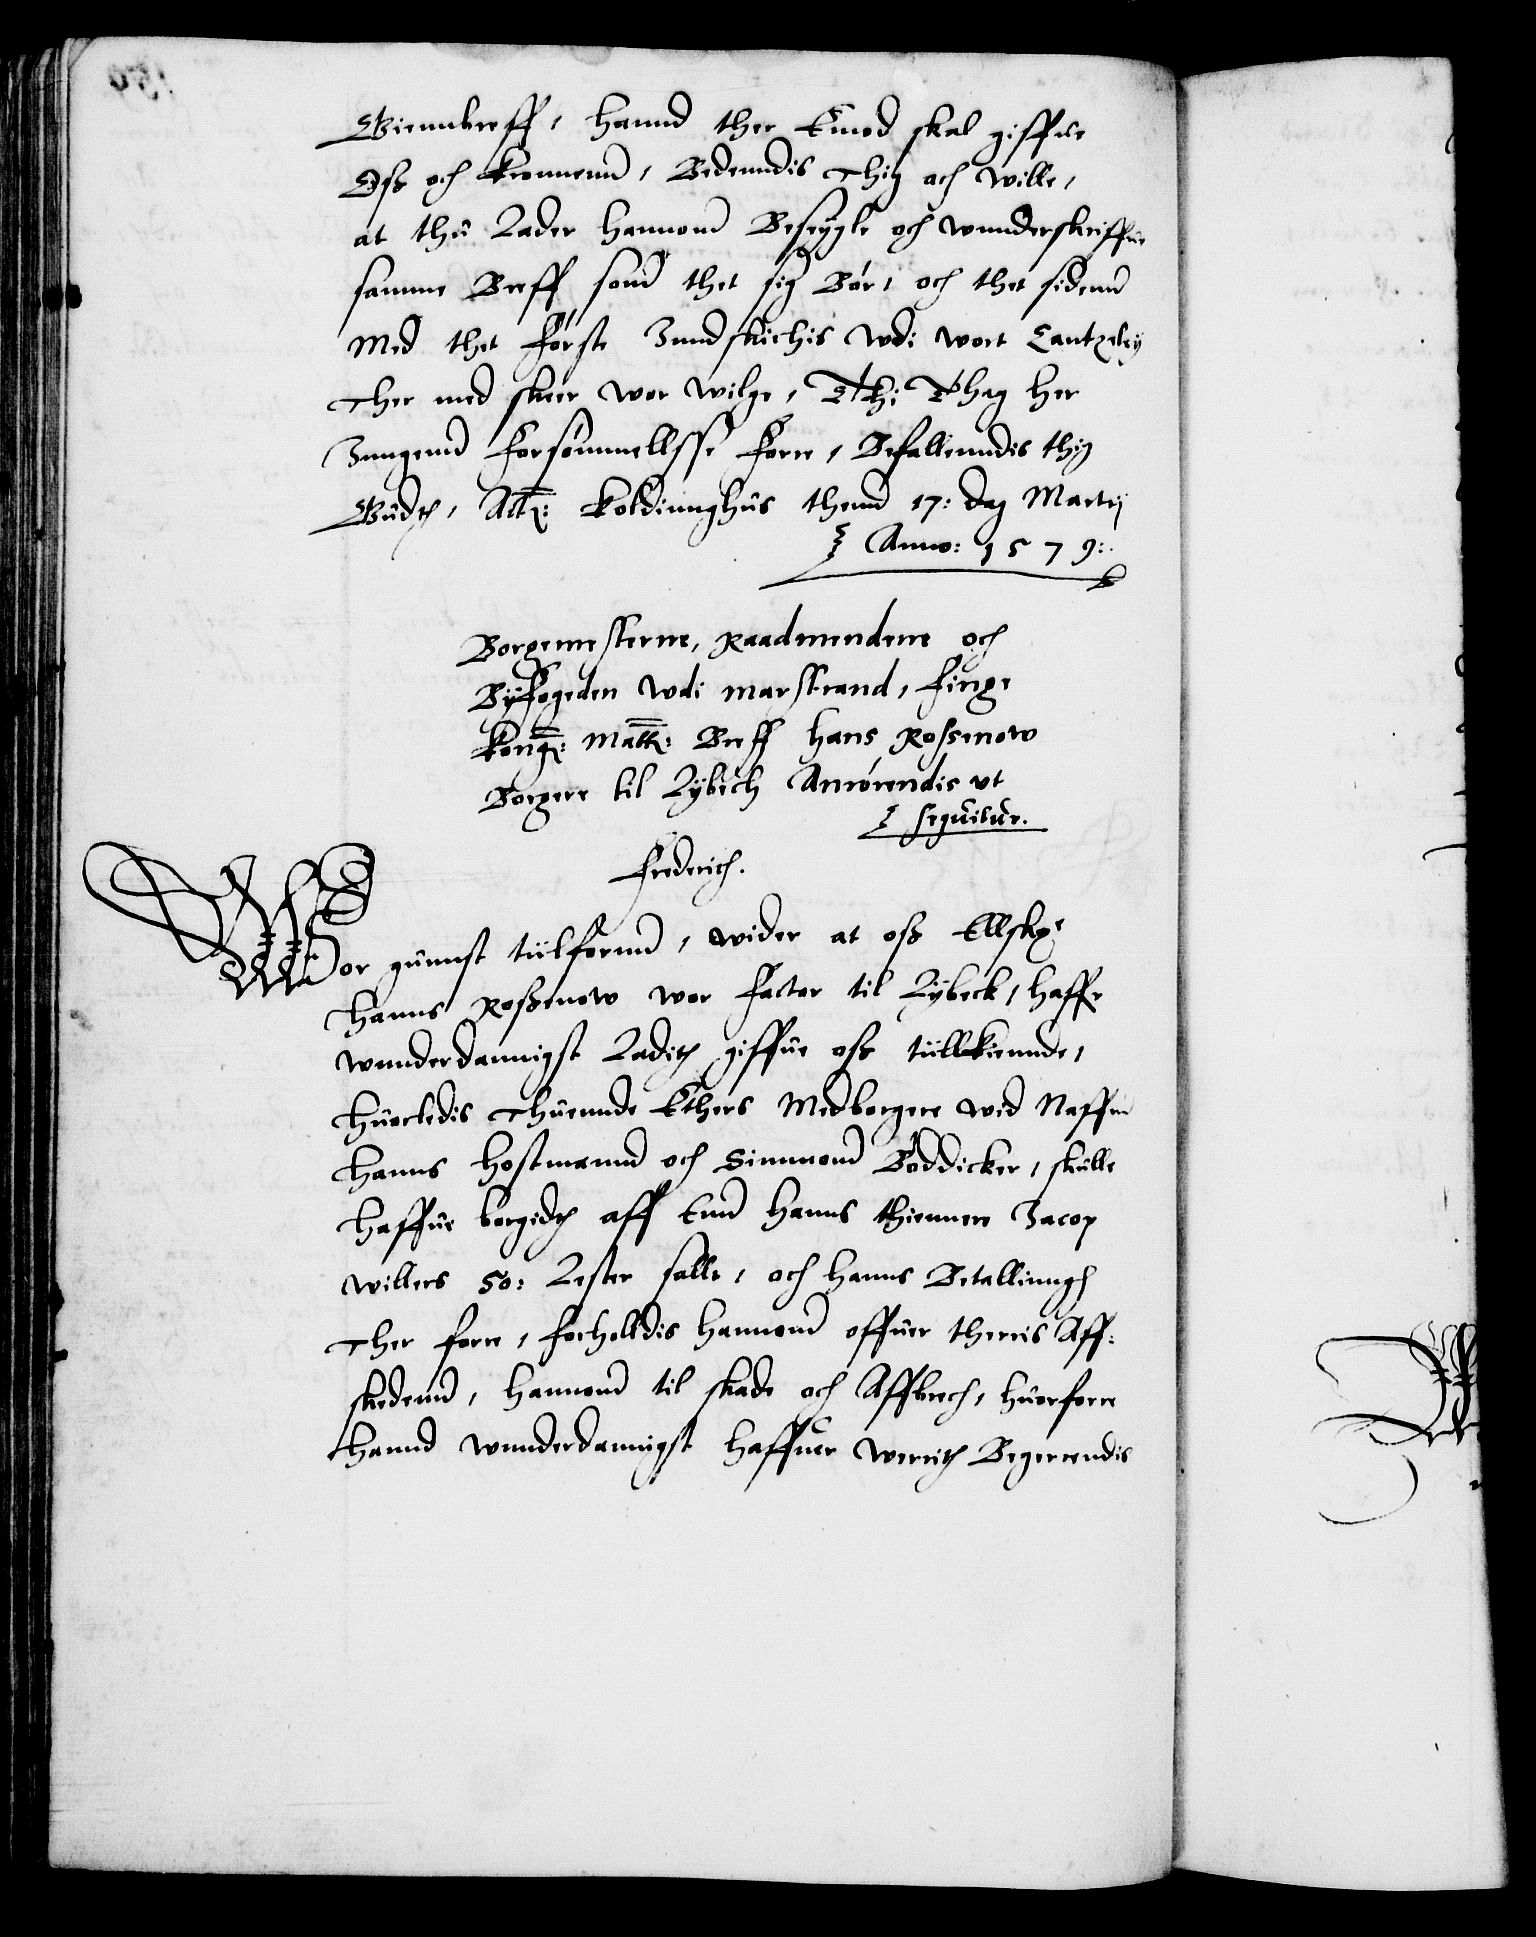 Gienbreff, hannd ther Emod skal giffue
Oss och Kronnenn, Bedenndis Thig och wille,
at thu Lader hannom Beseygle och wnnderskriffue
samme Breff som thet sig Bør, och thet sidenn
Med thet Første Inndskichis wdi wort Cantzelij
Ther med skeer wor wilge, Thi Thag her
Inngenn Forsømmellsse Forre, Befallenndis thig
Gudt, Actt: Koldinnghus thenn 17: dag Martij
Anno: 1579:
Borgemesterne, Raadmendene och
Byfogeden wdi Marstrand, Finge
Kong: Matt: Breff Hans Rossenow
Borgere til Lybech Anrørendis vt
sequitur.
Frederich.
Wor gunnst tilfornn, wider at oss Ellskge
Hanns Rossenow wor Factor til Lybeck, haffr
wnnderdannigst Ladit giffue oss tillkiennde,
Huorledis Thuennde Ethers Medborgere wed Naffnn
Hanns Hostmannd och Simmonn Bøddicker, skulle
Haffue borgidt aff Enn Hanns thiennere Jacop
willers 50: Lester sallt, och Hanns Betallinngh
Ther forre, forholldis Hannom offuer therris Aff:
skedenn, Hannom til skade och Affbrech, Huorforre
Hannd wnnderdannigst Haffuer werrit Begerrendis